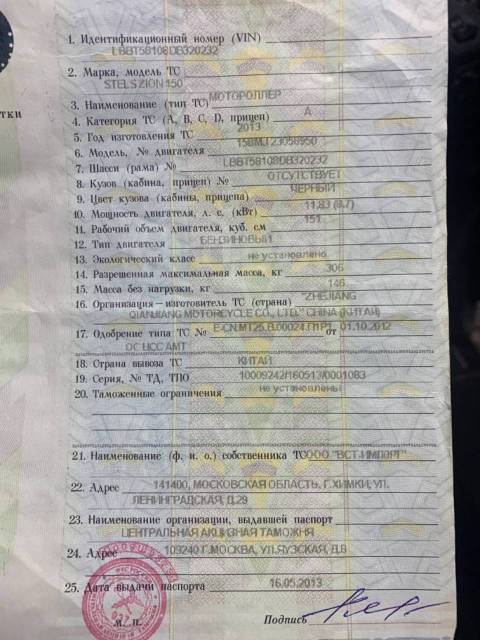 1. Идентификационный номер (VIN)
LBBT58108DB320232
2. Марка, модель ТС
STELS ZION 150
3. Наименование (тип ТС) МОТОРОЛЛЕР
4. Категория ТС (А, В, С, D, прицеп) А
5. Год изготовления ТС 2013
6. Модель, № двигателя 158MJ 23058950
7. Шасси (рама) № LBBT58108DB320232
8. Кузов (кабина, прицеп) № ОТСУТСТВУЕТ
9. Цвет кузова (кабины, прицепа) ЧЕРНЫЙ
10. Мощность двигателя, л. с. (кВт) 11,83 (8,7)
11. Рабочий объем двигателя, куб. см 151
12. Тип двигателя БЕНЗИНОВЫЙ
13. Экологический класс не установлено
14. Разрешенная максимальная масса, кг 306
15. Масса без нагрузки, кг 146
16. Организация—изготовитель ТС (страна) "ZHEJIANG
QIANJIANG MOTORCYCLE CO., LTD." CHINA (КИТАЙ)
17. Одобрение типа ТС № E-CN.MT25.B.00024.П1Р1 от 01.10.2012
ОС ЦСС АМТ
18. Страна вывоза ТС КИТАЙ
19. Серия, № ТД, ТПО 10009242/160513/0001083
20. Таможенные ограничения не установлены
21. Наименование (ф. и. о.) собственника ТС ООО "ВСТ-ИМПОРТ"
22. Адрес 141400, МОСКОВСКАЯ ОБЛАСТЬ, Г.ХИМКИ, УЛ.
ЛЕНИНГРАДСКАЯ, Д.29
23. Наименование организации, выдавшей паспорт
ЦЕНТРАЛЬНАЯ АКЦИЗНАЯ ТАМОЖНЯ
24. Адрес 109240 Г.МОСКВА, УЛ.ЯУЗСКАЯ, Д.8
25. Дата выдачи паспорта 16.05.2013
М. П. Подпись